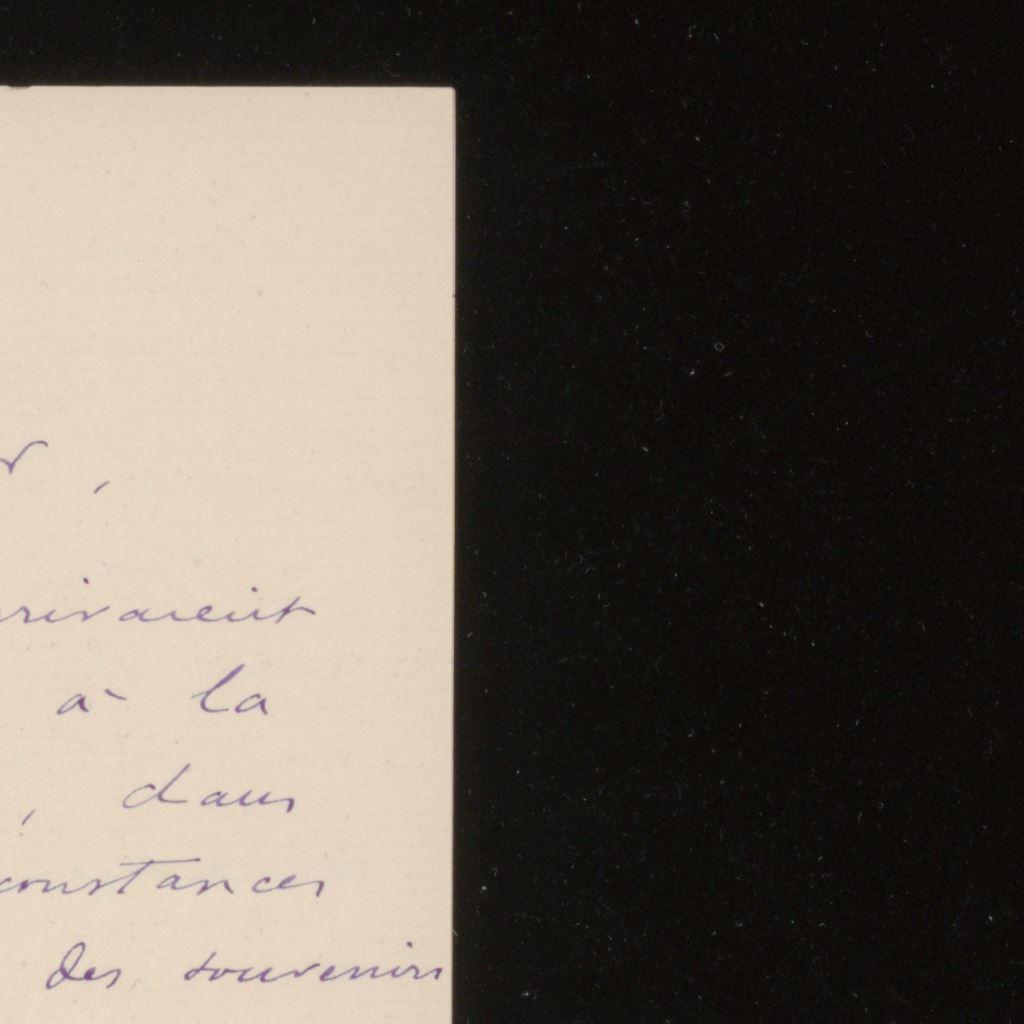 r,
rivaient
à la
, dans
constances
des souvenirs